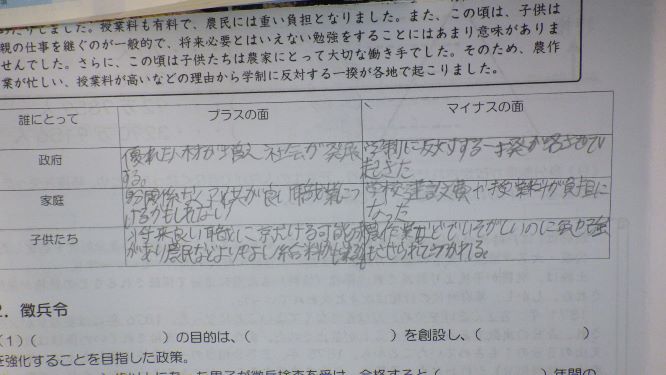 たりました。授業料も有料で、農民には重い負担となりました。また、この頃は、子供は
親の仕事を継ぐのが一般的で、将来必要とはいえない勉強をすることにはあまり意味がありま
せんでした。さらに、この頃は子供たちは農家にとって大切な働き手でした。そのため、農作
業が忙しい、授業料が高いなどの理由から学制に反対する一揆が各地で起こりました。
誰にとって プラスの面 マイナスの面
政府 優れた人材が増え社会が発展する。 学制に反対する一揆が各地で起きた
家庭 関係なく子供が良い職業につけるかもしれない 学校建設費や授業料が負担になった
子供たち 将来良い職に京だける可能性があり農民などよりもよし給料が 農作業などでいそがしいのに勉強もさせられてつかれる。
2. 徴兵令
(1)( )の目的は、( )を創設し、( )
を強化することを目指した政策。